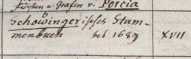 Fürsten u Grafen v. Porcia
Schawingerisches Stam-
menbuch bis 1689 XVII